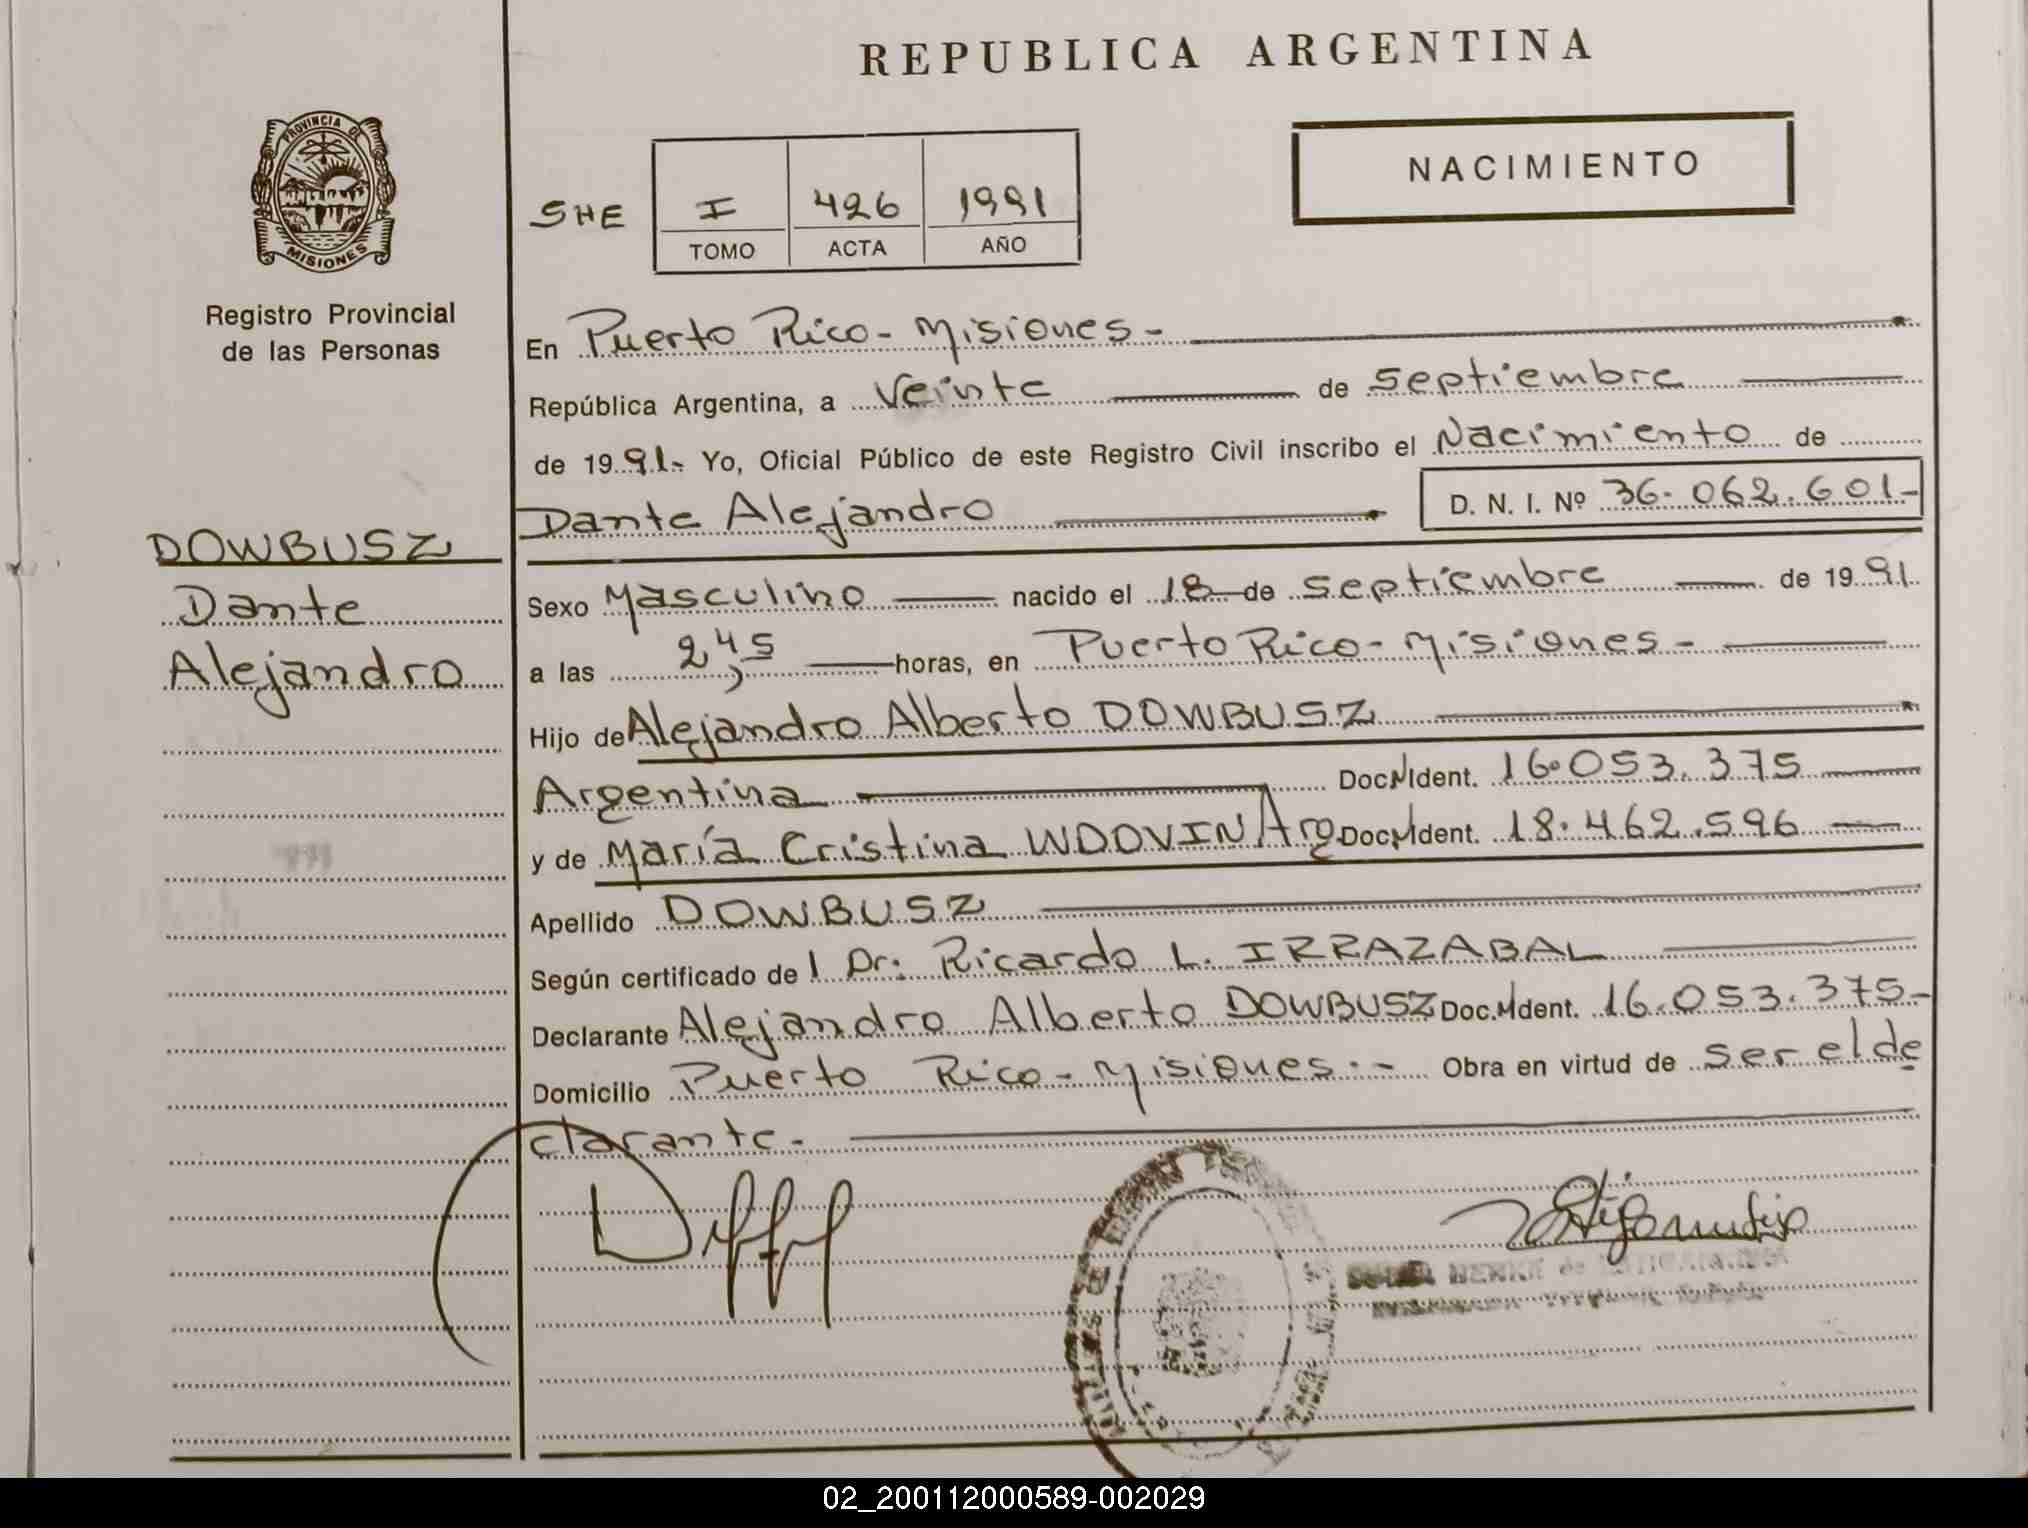 REPUBLICA ARGENTINA
PROVINCIA DE
MISIONES
Registro Provincial
de las Personas
NACIMIENTO
SHE I 426 1991
TOMO ACTA AÑO
En Puerto Rico - Misiones -
República Argentina, a Veinte de Septiembre
de 1991.- Yo, Oficial Público de este Registro Civil inscribo el Nacimiento de
Dante Alejandro D. N. I. Nº 36.062.601-
DOWBUSZ
Dante
Alejandro
Sexo Masculino nacido el 18 de Septiembre de 1991.
a las 2,45 horas, en Puerto Rico - Misiones -
Hijo de Alejandro Alberto DOWBUSZ
Argentina Doc.N.Ident. 16.053.375
y de María Cristina WDOVIN Arg Doc.N.Ident. 18.462.596
Apellido DOWBUSZ
Según certificado de l Dr. Ricardo L. IRRAZABAL
Declarante Alejandro Alberto DOWBUSZ Doc.N.Ident. 16.053.375-
Domicilio Puerto Rico - Misiones.- Obra en virtud de ser el de
clarante.-
02_200112000589-002029